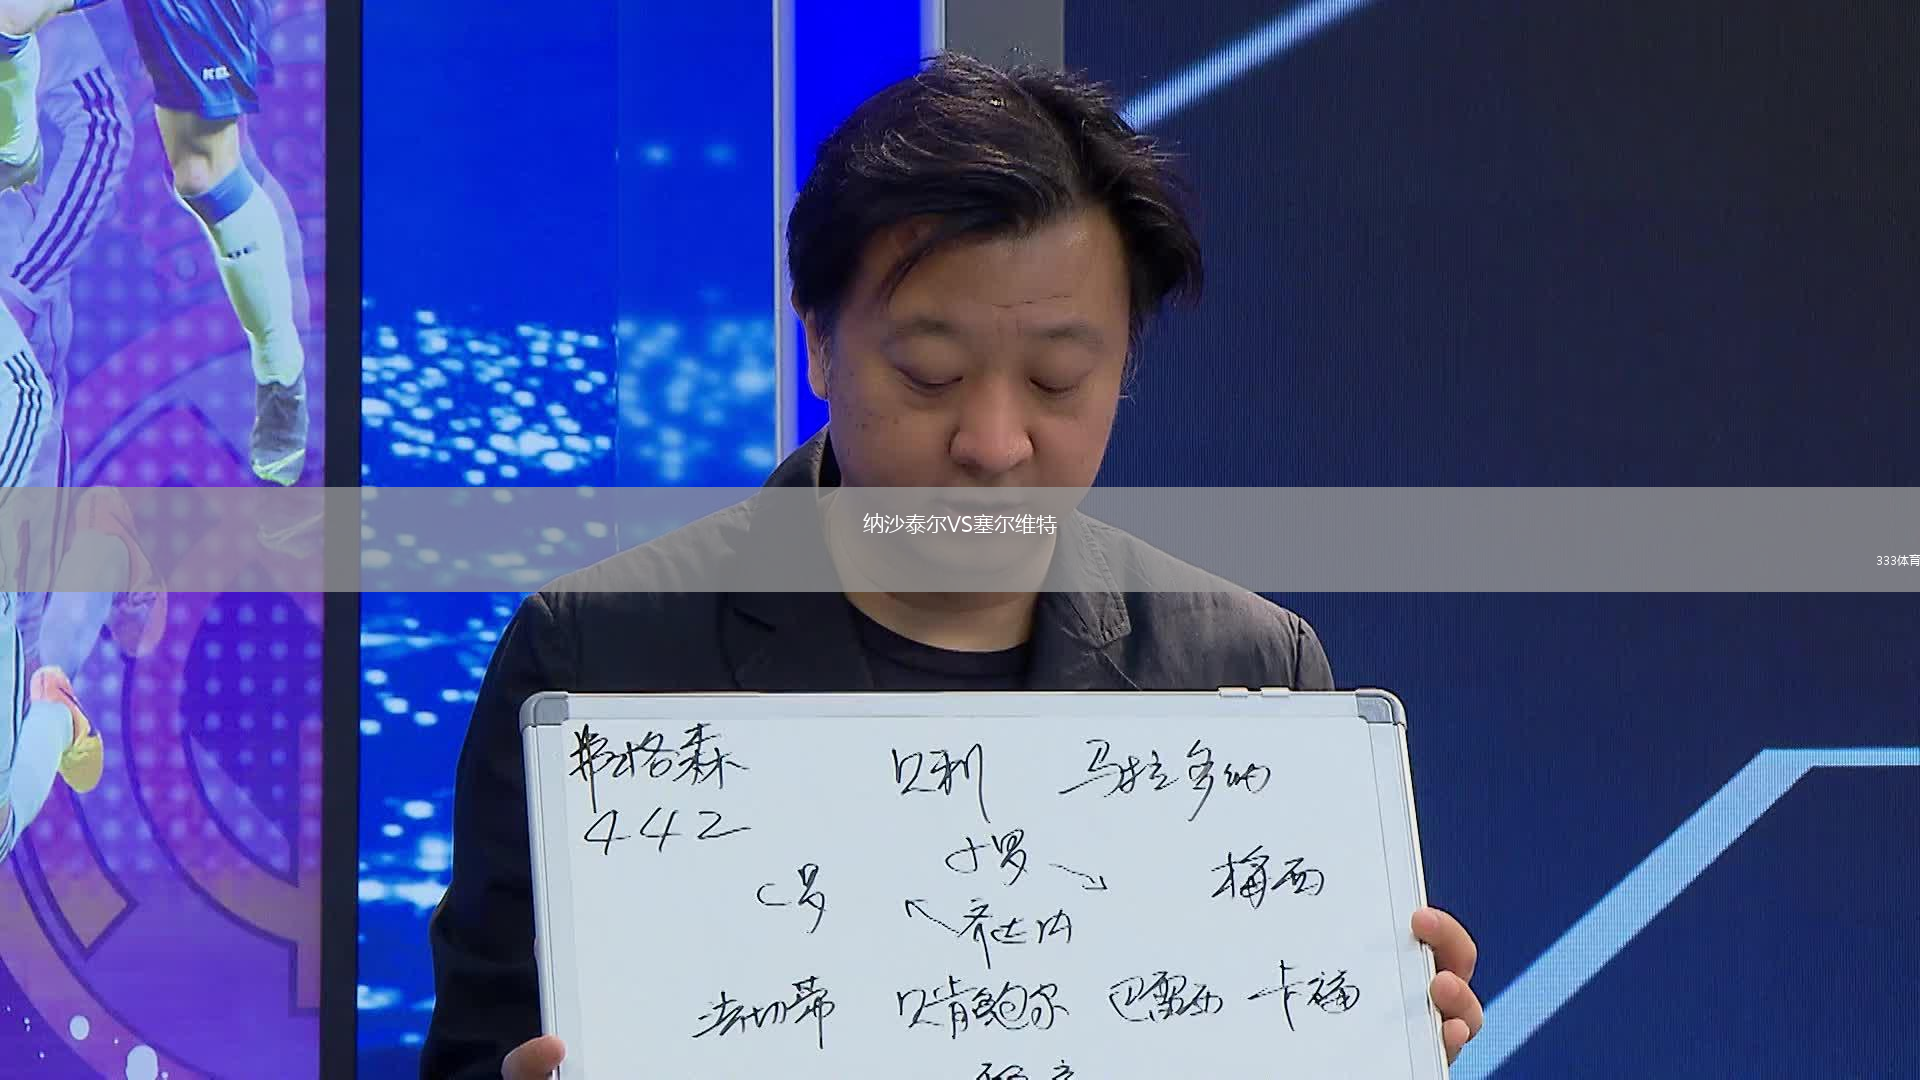 KEL
纳沙泰尔VS塞尔维特
333体育
弗格森 贝利 马拉多纳
442
小罗
C罗 梅西
齐达内
法切蒂 贝肯鲍尔 巴雷西 卡福